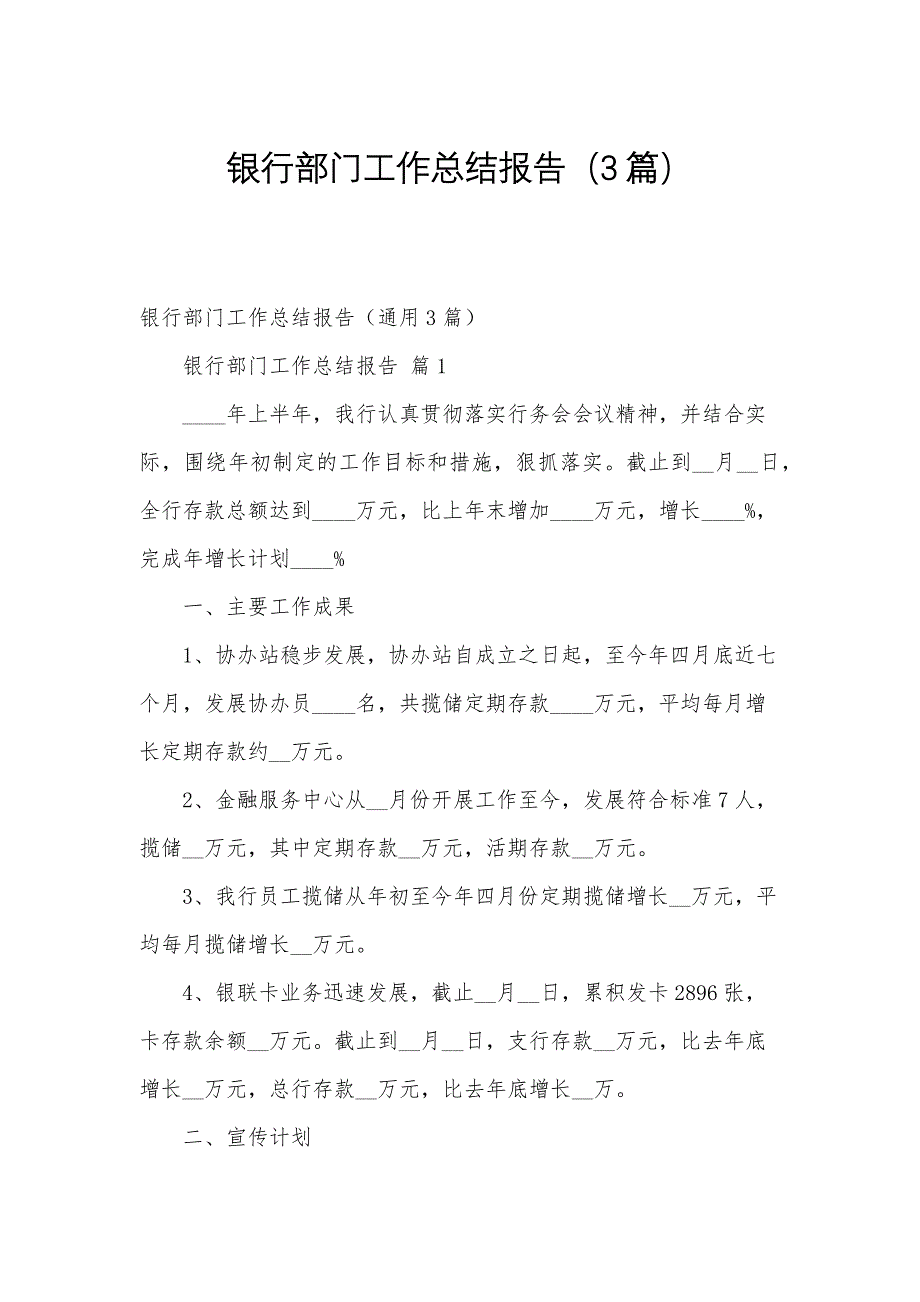 银行部门工作总结报告（3篇）
银行部门工作总结报告（通用3篇）
银行部门工作总结报告 篇1
____年上半年，我行认真贯彻落实行务会会议精神，并结合实
际，围绕年初制定的工作目标和措施，狠抓落实。截止到__月__日，
全行存款总额达到____万元，比上年末增加____万元，增长____%，
完成年增长计划____%
一、主要工作成果
1、协办站稳步发展，协办站自成立之日起，至今年四月底近七
个月，发展协办员____名，共揽储定期存款____万元，平均每月增
长定期存款约__万元。
2、金融服务中心从__月份开展工作至今，发展符合标准7人，
揽储__万元，其中定期存款__万元，活期存款__万元。
3、我行员工揽储从年初至今年四月份定期揽储增长__万元，平
均每月揽储增长__万元。
4、银联卡业务迅速发展，截止__月__日，累积发卡2896张，
卡存款余额__万元。截止到__月__日，支行存款__万元，比去年底
增长__万元，总行存款__万元，比去年底增长__万。
二、宣传计划